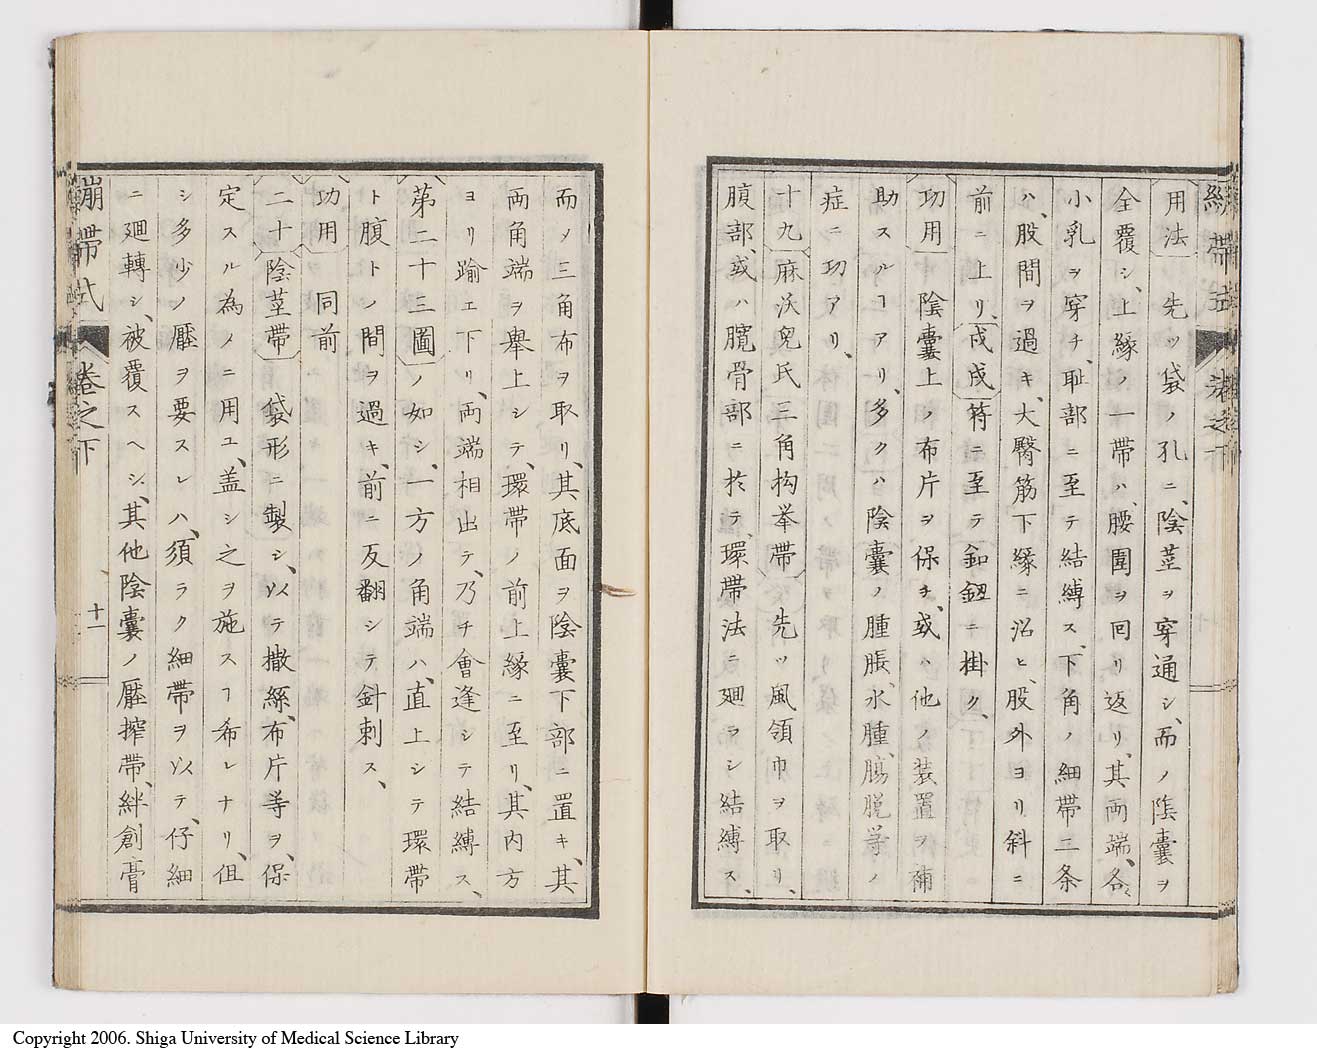 用法 先ツ袋ノ孔ニ、陰茎ヲ穿通シ、而ノ陰嚢ヲ
全覆シ、上縁ノ一帯ハ、腰囲ヲ回リ返リ、其両端、各〻
小乳ヲ穿チ、恥部ニ至テ結縛ス、下角ノ細帯二条
ハ、股間ヲ過キ、大臀筋下縁ニ沿ヒ、股外ヨリ斜ニ
前ニ上リ、戍戌符ニ至テ釦釼ニ掛ク、
功用 陰嚢上ノ布片ヲ保チ、或ハ他ノ装置ヲ補
助スルヿアリ、多クハ陰嚢ノ腫脹、水腫、腸脱等ノ
症ニ功アリ、
十九 麻沃児氏三角抅挙帯 先ツ風領巾ヲ取リ、
腹部、或ハ臗骨部ニ於テ、環帯法ニ廻ラシ結縛ス、
而ノ三角布ヲ取リ、其底面ヲ陰嚢下部ニ置キ、其
両角端ヲ挙上シテ、環帯ノ前上縁ニ至リ、其内方
ヨリ踰エ下リ、両端相出テ、乃チ會逢シテ結縛ス、
第二十三圖ノ如シ、一方ノ角端ハ、直上シテ環帯
ト腹トノ間ヲ過キ、前ニ反翻シテ針刺ス、
功用 同前
二十 陰茎帯 袋形ニ製シ、以テ撒絲、布片等ヲ、保
定スル為メニ用ユ、盖シ之ヲ施スヿ希レナリ、但
シ多少ノ壓ヲ要スレハ、須ラク細帯ヲ以テ、仔細
ニ廻轉シ、被覆スヘシ、其他陰嚢ノ壓搾帯、絆創膏
繃帯式 巻之下 十一
Copyright 2006. Shiga University of Medical Science Library